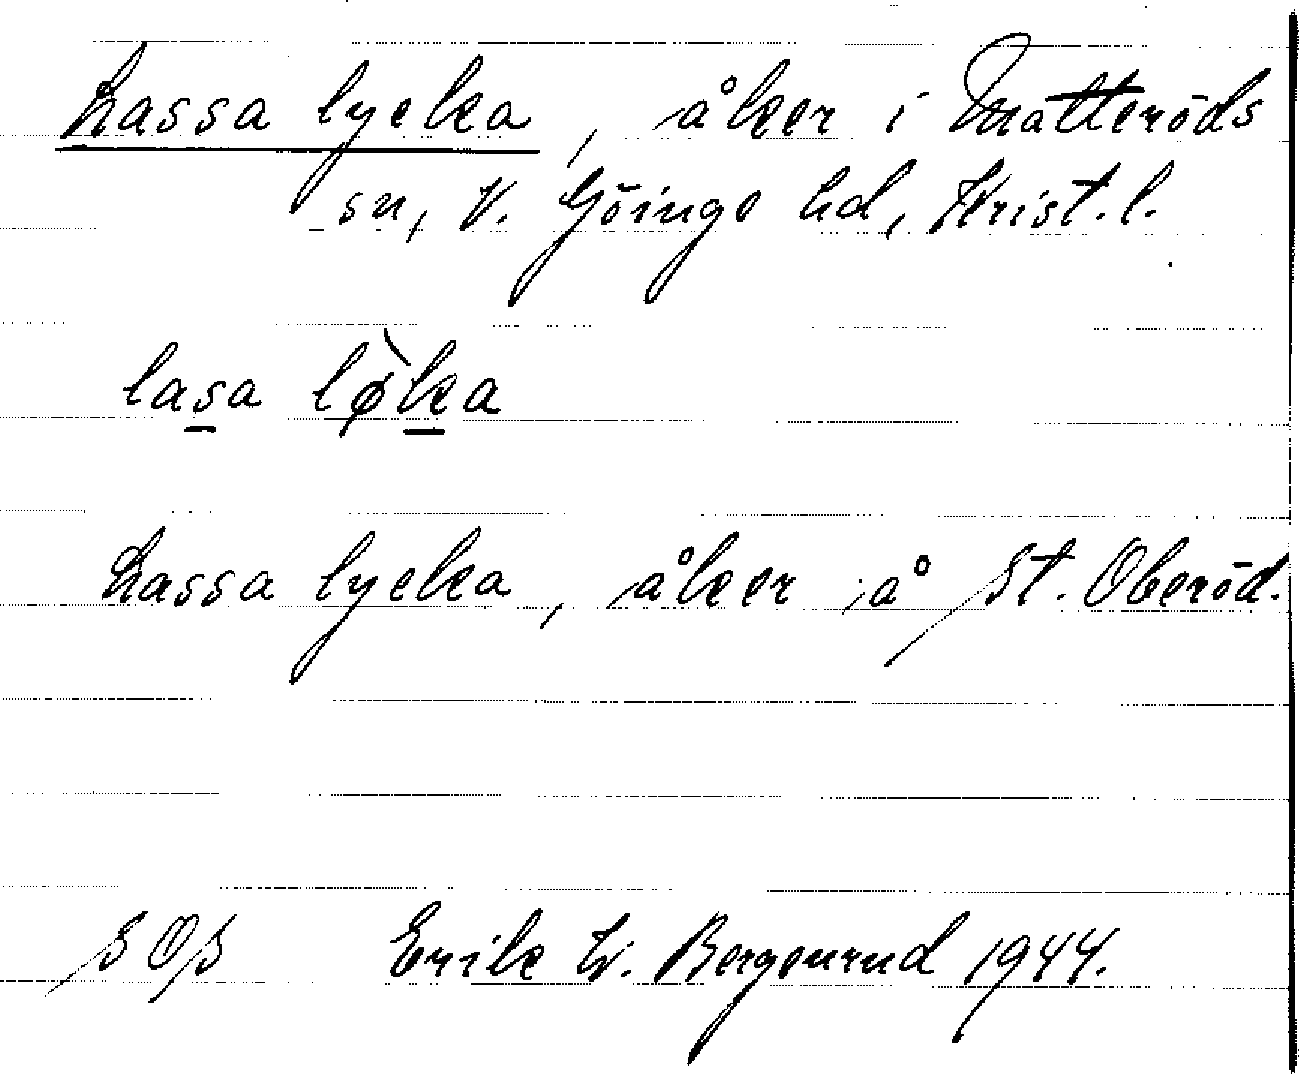 Lassa lycka, åker i Matteröds
sn, V. Göinge hd, Krist. l.
lasa lø̀ka
Lassa lycka, åker på St. Oberöd.
SOS Erik W. Bergenrud 1944.